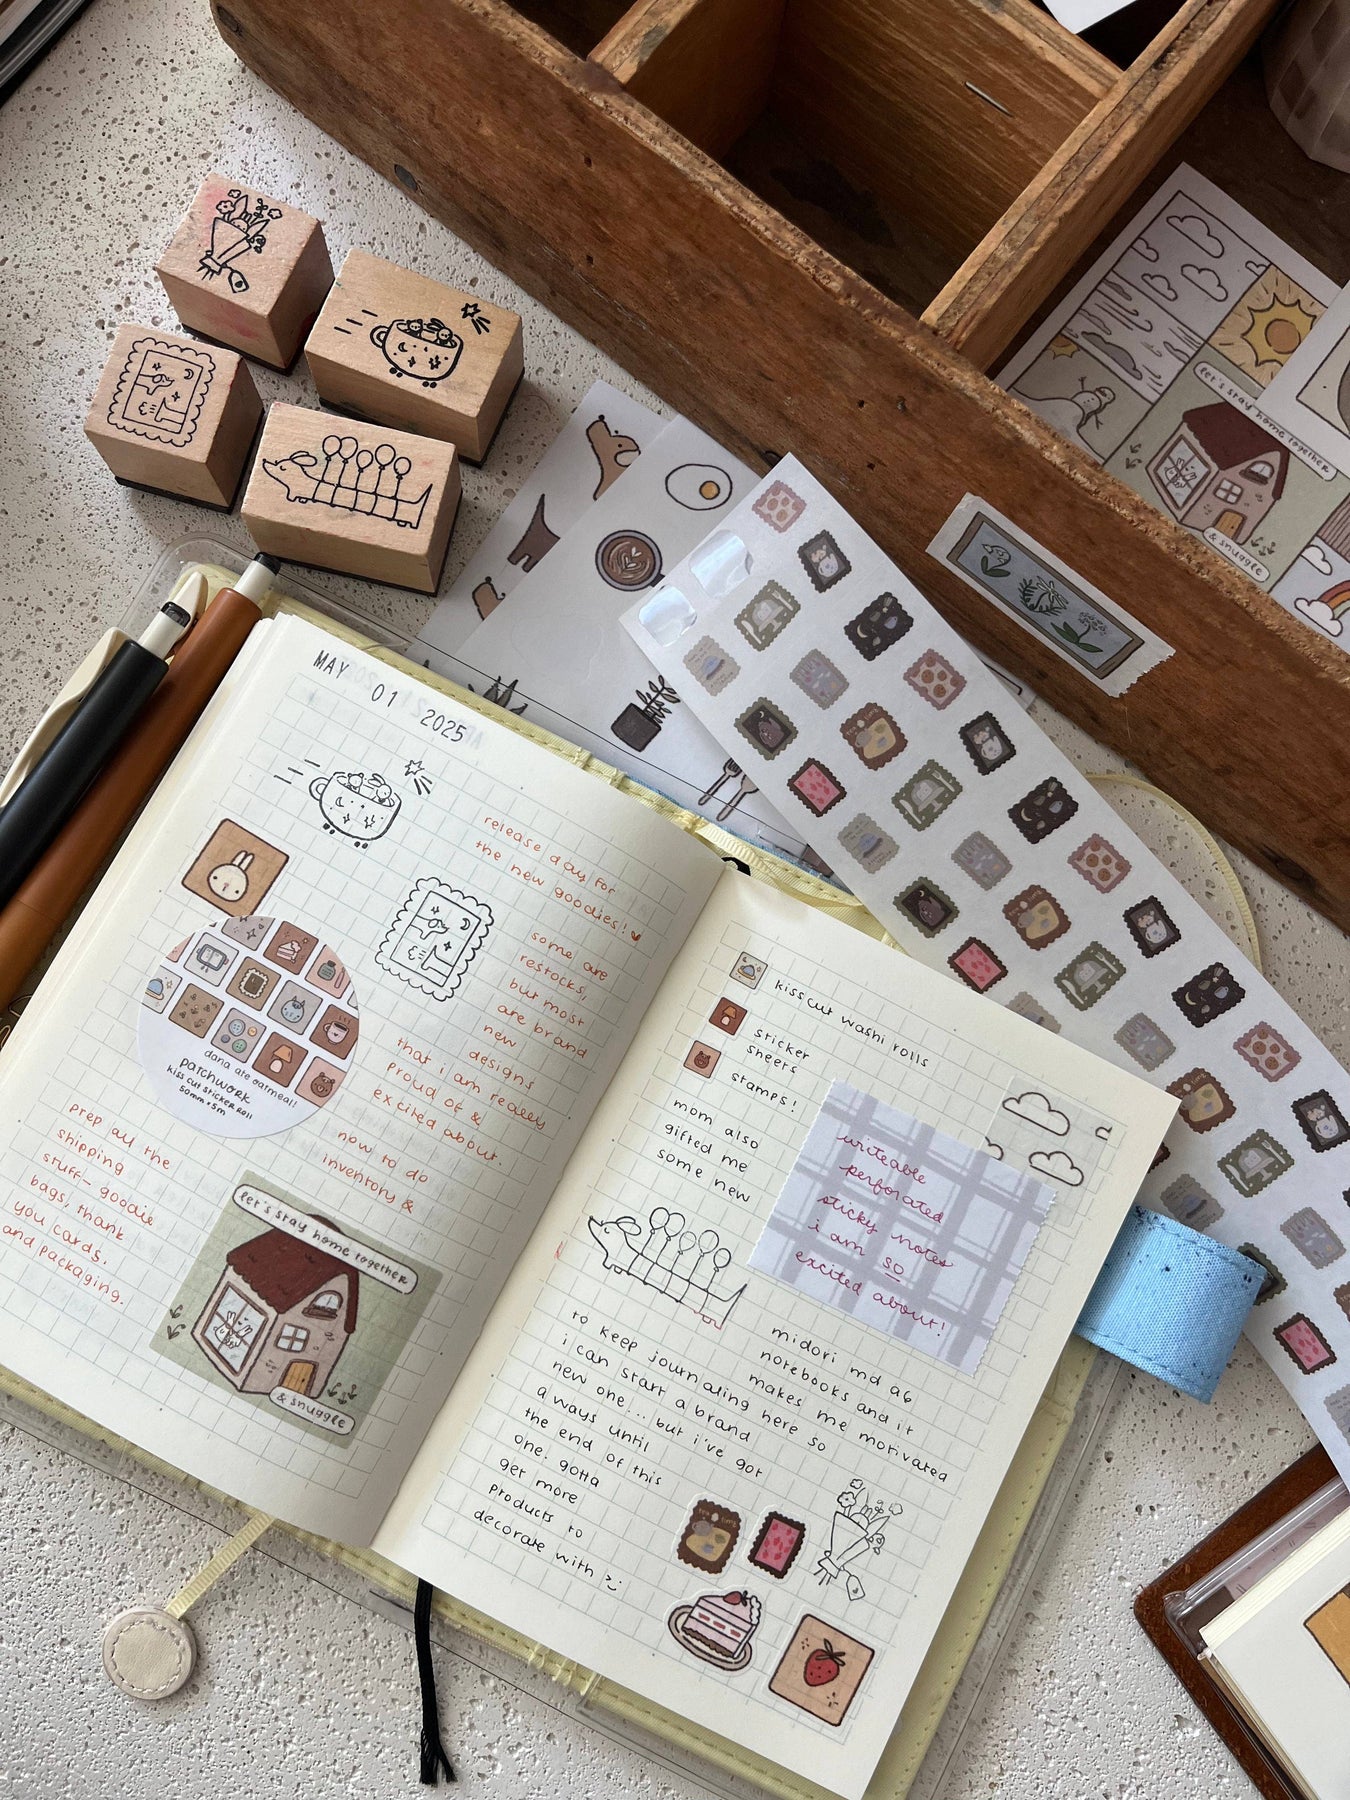 MAY 01 2025
release day for
the new goodies!
some are
restocks,
but most
are brand
new
designs
that i am really
proud of &
excited about.
now to do
inventory &
dana ate oatmeal!
patchwork
kiss cut sticker roll
50mm × 5m
prep all the
shipping
stuff- goodie
bags, thank
you cards,
and packaging.
let's stay home together
& snuggle
kiss cut washi rolls
sticker
sheets
stamps!
mom also
gifted me
some new
writeable
perforated
sticky notes
i am so
excited about!
midori md a6
notebooks and it
makes me motivated
to keep journaling here so
i can start a brand
new one... but i've got
a ways until
the end of this
one. gotta
get more
products to
decorate with
let's stay home together
& snuggle